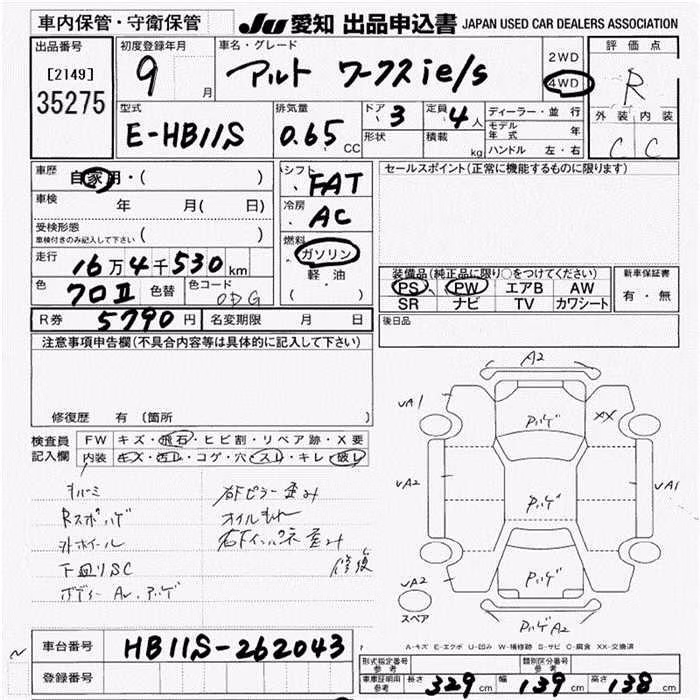 車内保管・守衛保管
JU 愛知 出品申込書 JAPAN USED CAR DEALERS ASSOCIATION
出品番号
[2149]
35275
初度登録年月
9 月
車名・グレード
アルト ワークス ie/s
2WD
4WD
評価点
R
外装 内装
C C
型式
E-HB11S
排気量
0.65 CC
ドア 3
形状
定員 4 人
積載 kg
ディーラー・並行
モデル年式 年
ハンドル 左・右
車歴
自家用・( )
車検 年 月( 日)
受検形態
車検付きのみ記入して下さい ( )
走行 16万4千530km
色 クロⅡ 色替 色コード 0DG
シフト FAT
冷房 AC
燃料
ガソリン
軽油
( )
セールスポイント(正常に機能するものに限ります)
装備品(純正品に限り○をつけてください)
PS PW エアB AW
SR ナビ TV カワシート
新車保証書
有・無
R券 5790円 名変期限 月 日
後日品
注意事項申告欄(不具合内容等は具体的に記入して下さい)
修復歴 有〔箇所
検査員
記入欄
FW キズ・飛石・ヒビ割・リペア跡・X要
内装 キズ・汚レ・コゲ・穴・スレ・キレ・破レ
右Fピラー歪み
Rスポハゲ オイルもれ
外ホイール 右Fインパネ歪み
修復
下回りSC
ボディー AU.ハゲ
A2
UA1
XX
ハゲ
UA2
ハゲ
UA1
ハゲ
UA2
スペア
ハゲA2
A-キズ E-エクボ U-凹み W-補修跡 S-サビ C-腐食 XX-交換済
車台番号 HB11S-262043
登録番号
形式指定番号
参考
類別区分番号
参考
車庫証明用
参考
長さ 329 cm 幅 139 cm 高さ 138 cm